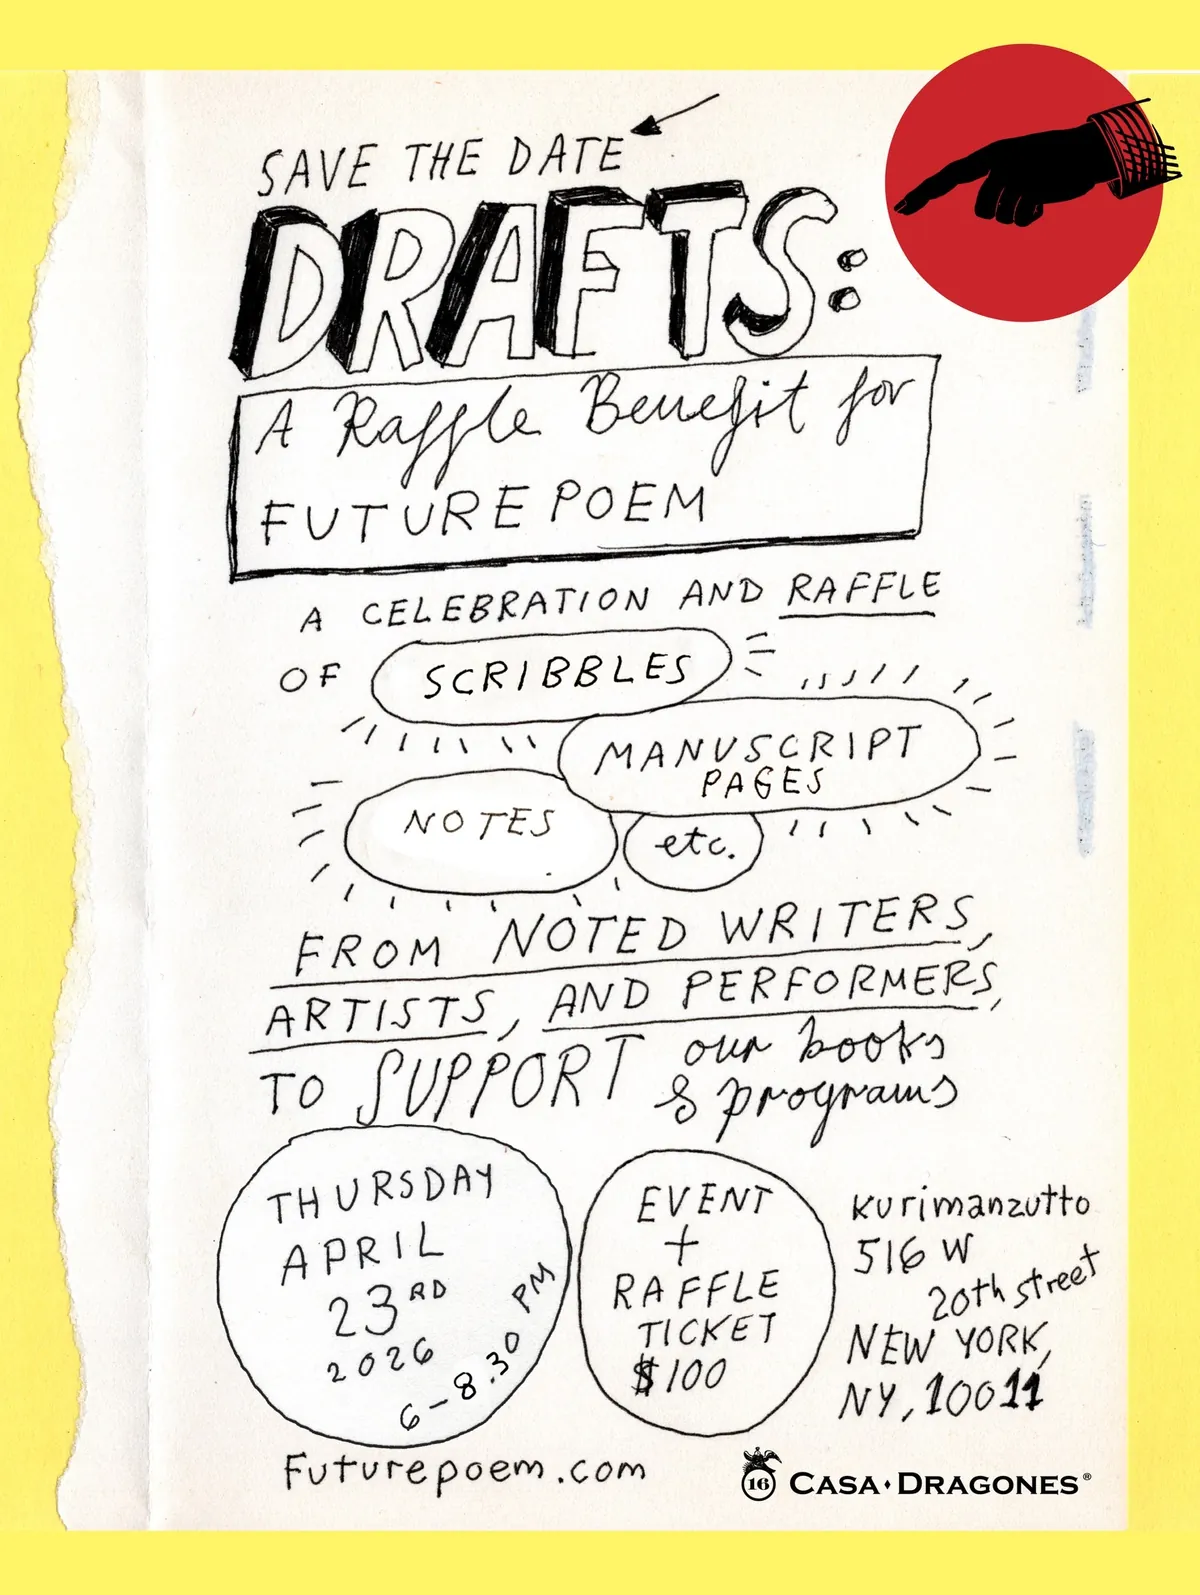 SAVE THE DATE
DRAFTS:
A Raffle Benefit for
FUTUREPOEM
A CELEBRATION AND RAFFLE
OF SCRIBBLES
MANUSCRIPT
PAGES
NOTES
etc.
FROM NOTED WRITERS,
ARTISTS, AND PERFORMERS,
TO SUPPORT our books
& programs
THURSDAY
APRIL
23RD
2026
6-8.30 PM
EVENT
+
RAFFLE
TICKET
$100
kurimanzutto
516 W
20th street
NEW YORK,
NY, 10011
Futurepoem.com
16 CASA DRAGONES®